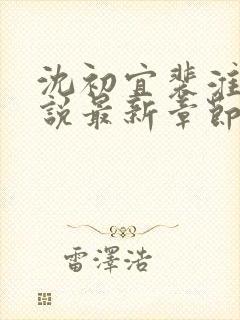 沈初宜裴淮
說最新章節
雷澤浩